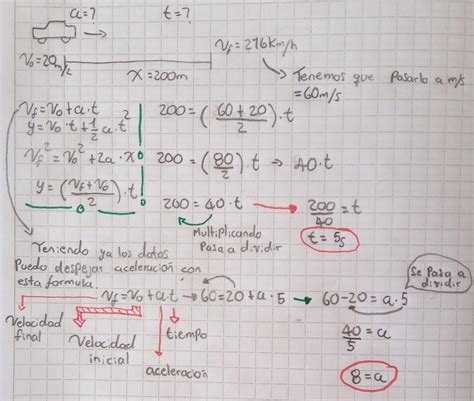 a=? t=?
Vf=216Km/h
V0=20m/s
x=200m
Tenemos que Pasarlo a m/s
=60m/s
Vf=V0+a·t
y=V0·t+1/2 a·t²
Vf²=V0²+2a·x
y=(Vf+V0/2)·t
200=(60+20/2)·t
200=(80/2)·t → 40·t
200=40·t → 200/40=t
Multiplicando
Pasa a dividir
t=5s
Teniendo ya los datos
Puedo despejar aceleración con
esta formula
Vf=V0+a·t → 60=20+a·5 → 60-20=a·5
Se Pasa a
dividir
Velocidad
final
Velocidad
inicial
tiempo
aceleración
40/5=a
8=a